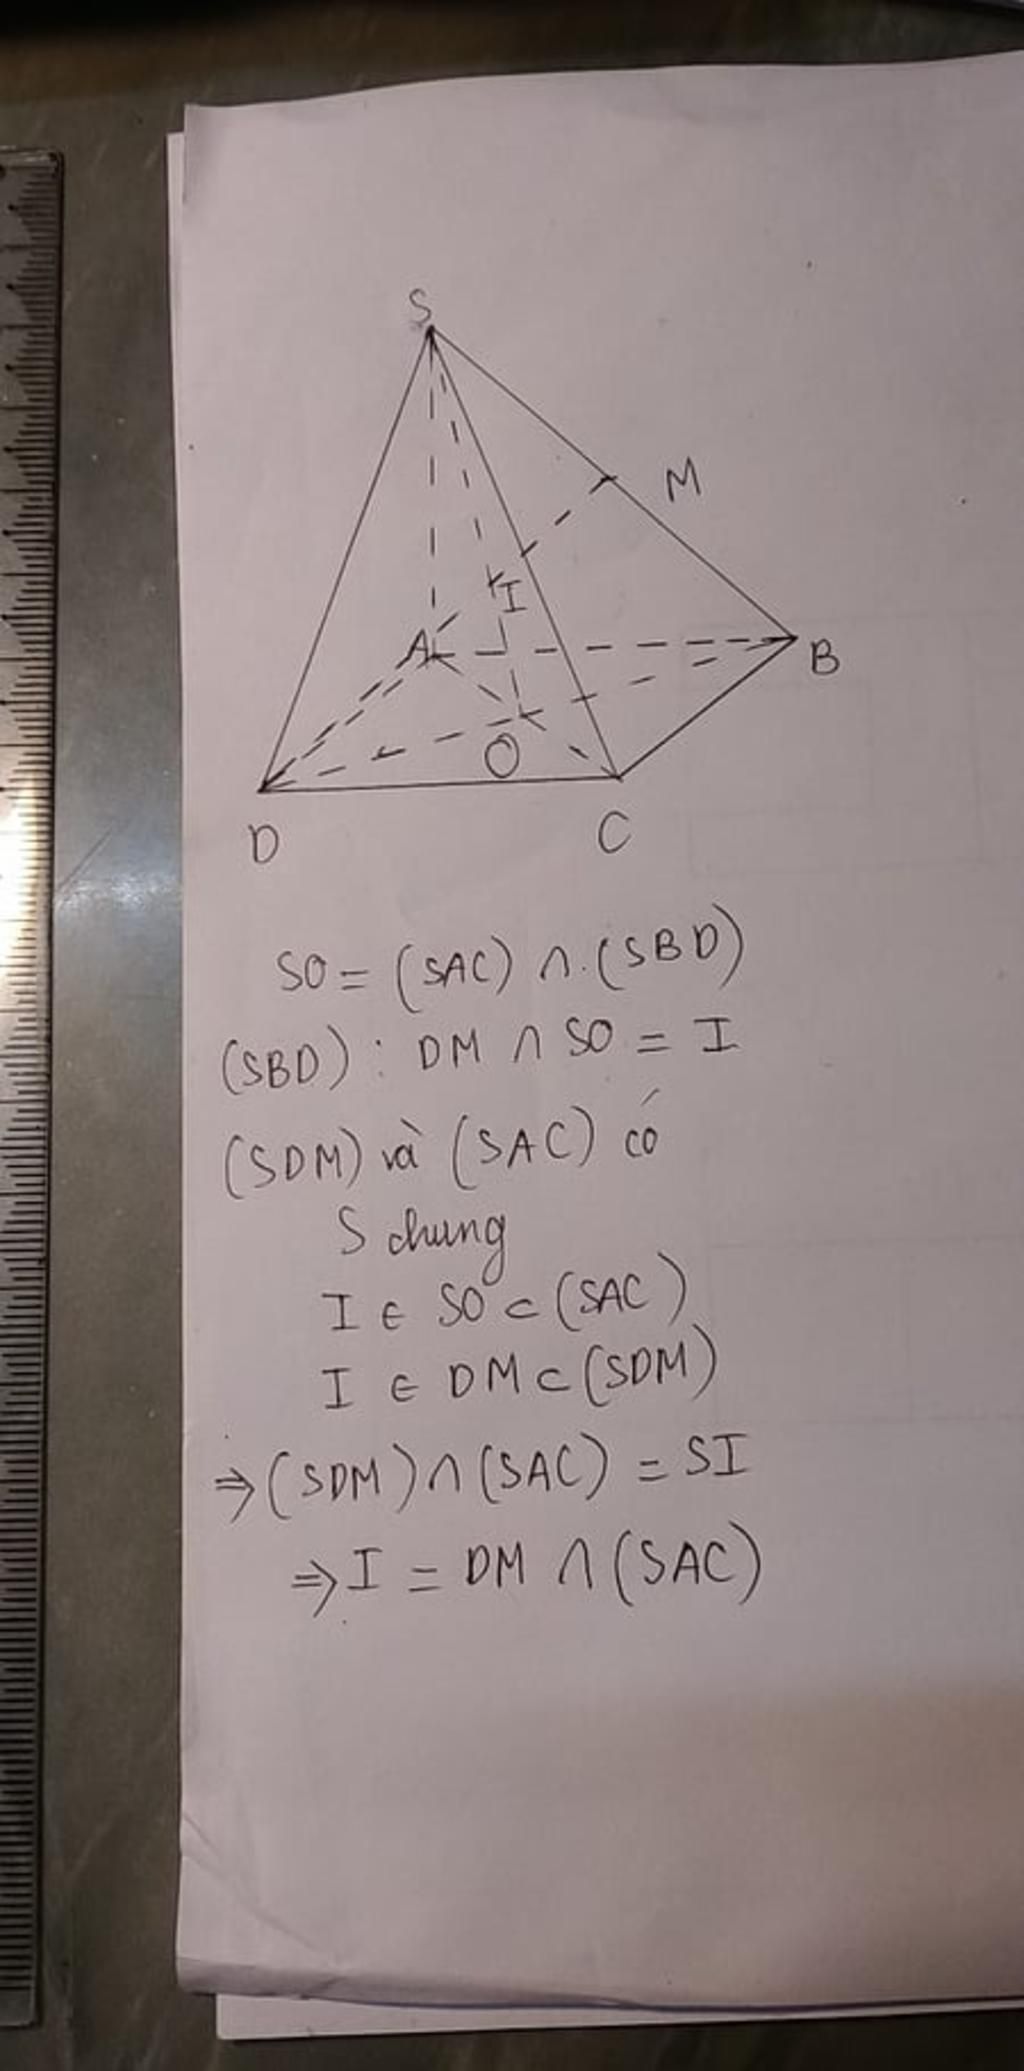 S
M
I
A
B
O
D
C
SO = (SAC) ∩ (SBD)
(SBD) : DM ∩ SO = I
(SDM) và (SAC) có
S chung
I ∈ SO ⊂ (SAC)
I ∈ DM ⊂ (SDM)
⇒ (SDM) ∩ (SAC) = SI
⇒ I = DM ∩ (SAC)